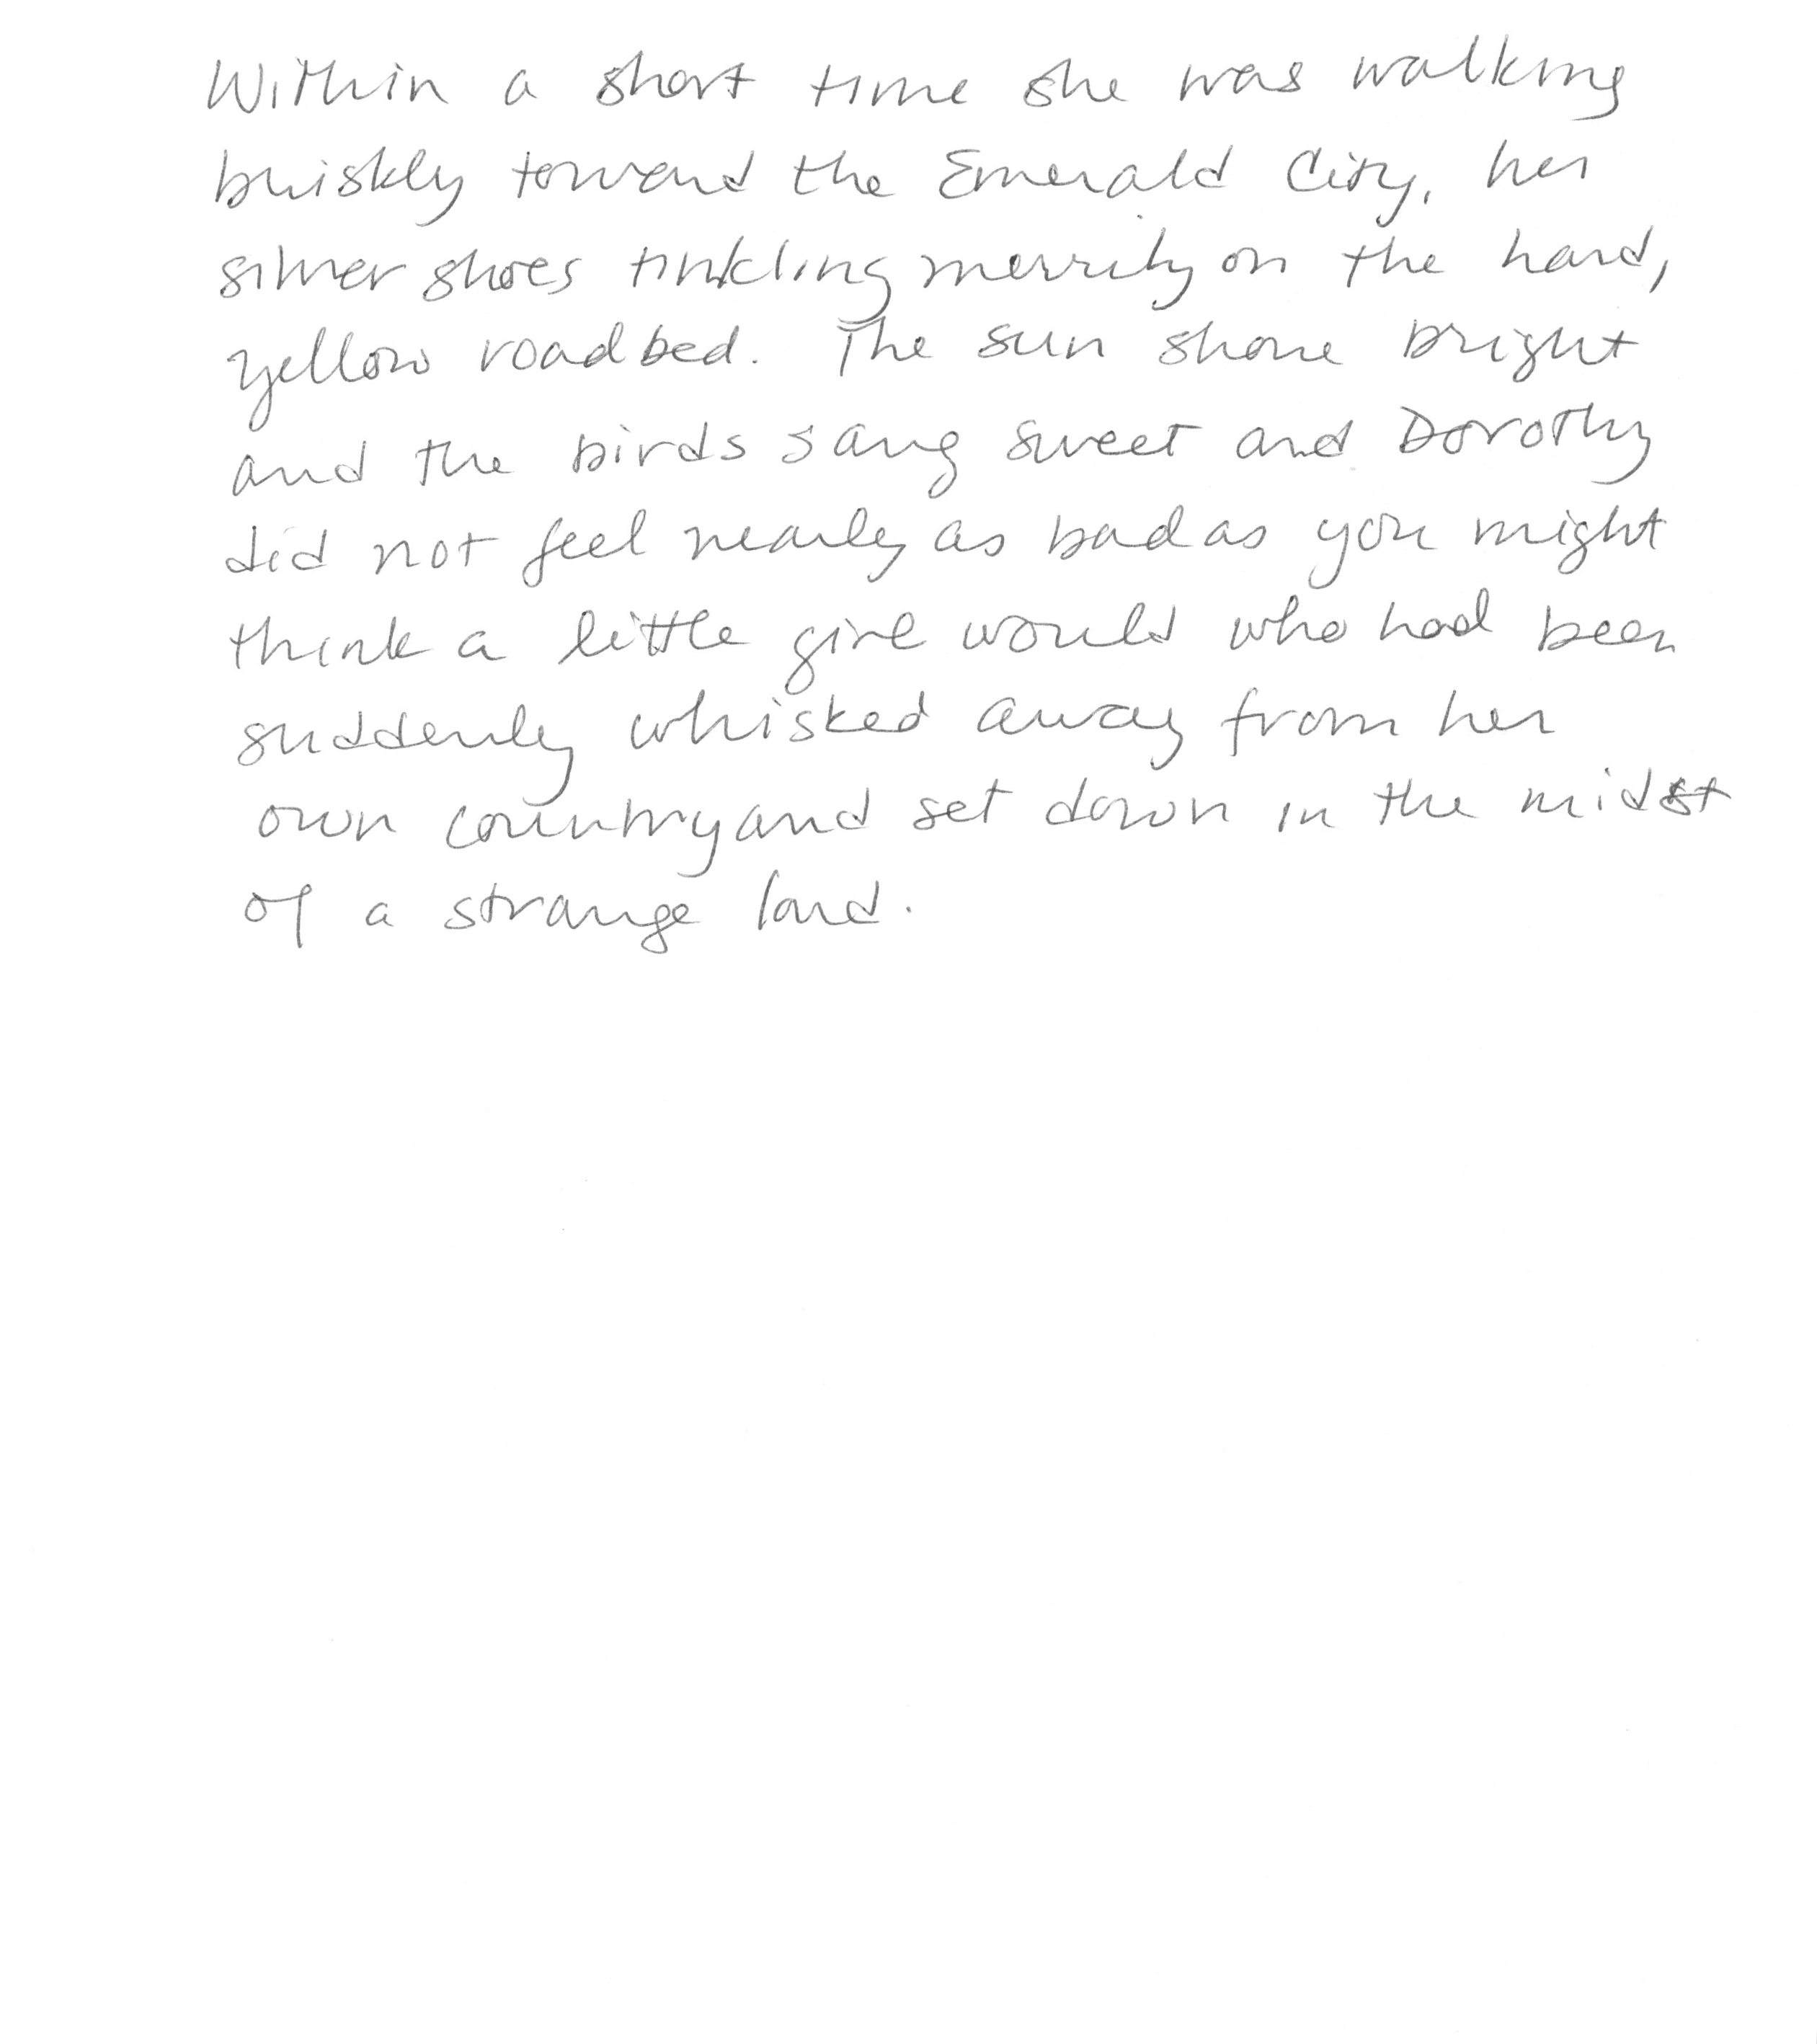 Within a short time she was walking
briskly toward the Emerald City, her
silver shoes tinkling merrily on the hard,
yellow roadbed. The sun shone bright
and the birds sang sweet and Dorothy
did not feel nearly as bad as you might
think a little girl would who had been
suddenly whisked away from her
own country and set down in the midst
of a strange land.